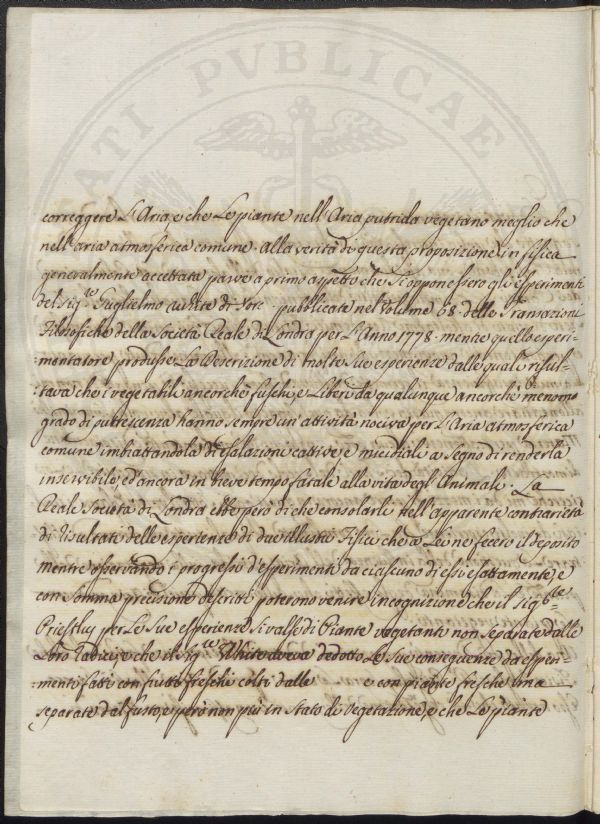 ATI PVBLICAE
correggere L'Aria, e che Le piante nell'Aria putrida vegetano meglio che
nell'aria atmosferica comune. Alla verità di questa proposizione in fisica
generalmente accettata parve a primo aspetto che si opponessero gli esperimenti
del Sig.re Guglielmo White di York pubblicate nel Volume 68. delle Transazioni
Filosofiche della Società Reale di Londra per L'Anno 1778. mentre quello speri-
:mentatore produsse La Descrizione di molte Sue esperienze dalle quali risul-
:tava che i vegetabili ancorchè freschi, e Liberi da qualunque ancorchè menomo
grado di putrescenza hanno sempre un'attività nociva per L'Aria atmosferica
comune imbrattandola di esalazione cattive, e micidiali a Segno di renderla
inservibile, ed ancora in breve tempo fatale alla vita degl'Animali. La
Reale Società di Londra ebbe però di che consolarsi nell'apparente contrarietà
di risultati delle esperienze di due illustri Fisici che a Lei ne fecero il deposito
mentre osservando i progressi d'esperimenti da ciascuno di essi esattamente, e
con Somma precisione descritti poterono venire in cognizione che il Sig.re
Priestley per Le Sue esperienze Si valse di Piante vegetanti non Separate dalle
Loro radici, e che il Sig.re White aveva dedotto Le Sue conseguenze da esperi-
:menti fatti con frutti freschi colti dalle e con piante fresche ma
separate dal fusto, e però non più in Stato di Vegetazione, e che Le piante